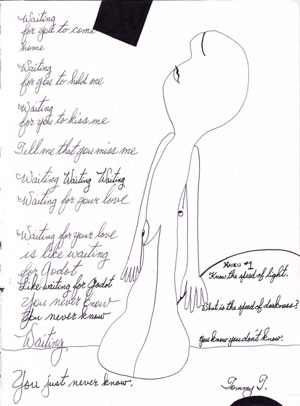 Waiting
for you to come
home
Waiting
for you to hold me
Waiting
for you to kiss me
Tell me that you miss me
Waiting Waiting Waiting
Waiting for your love
Waiting for your love
is like waiting
for Godot
Like waiting for Godot
You never know
You never know
Waiting
You just never know.
Haiku #1
Know the speed of light.
What is the speed of darkness?
You know you don't know.
Tommy T.